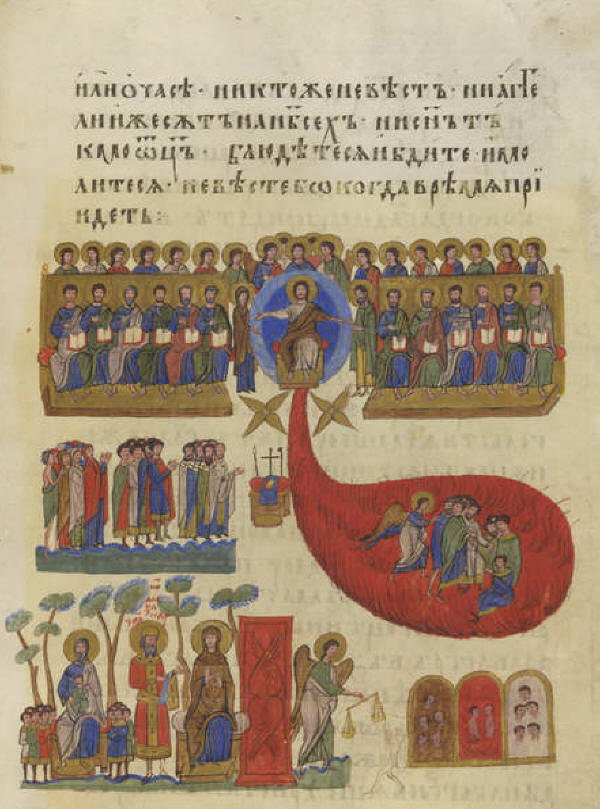 или о часѣ · никтоже невѣстъ · ни аг҃ге
ли иже сѫтъ на нб҃сехъ · ни сн҃ъ тъ
кмо ѿц҃ъ · блюдѣтесѧ и бдите · и мо
литесѧ · не вѣсте бо когда врѣмѧ прі
идетъ :